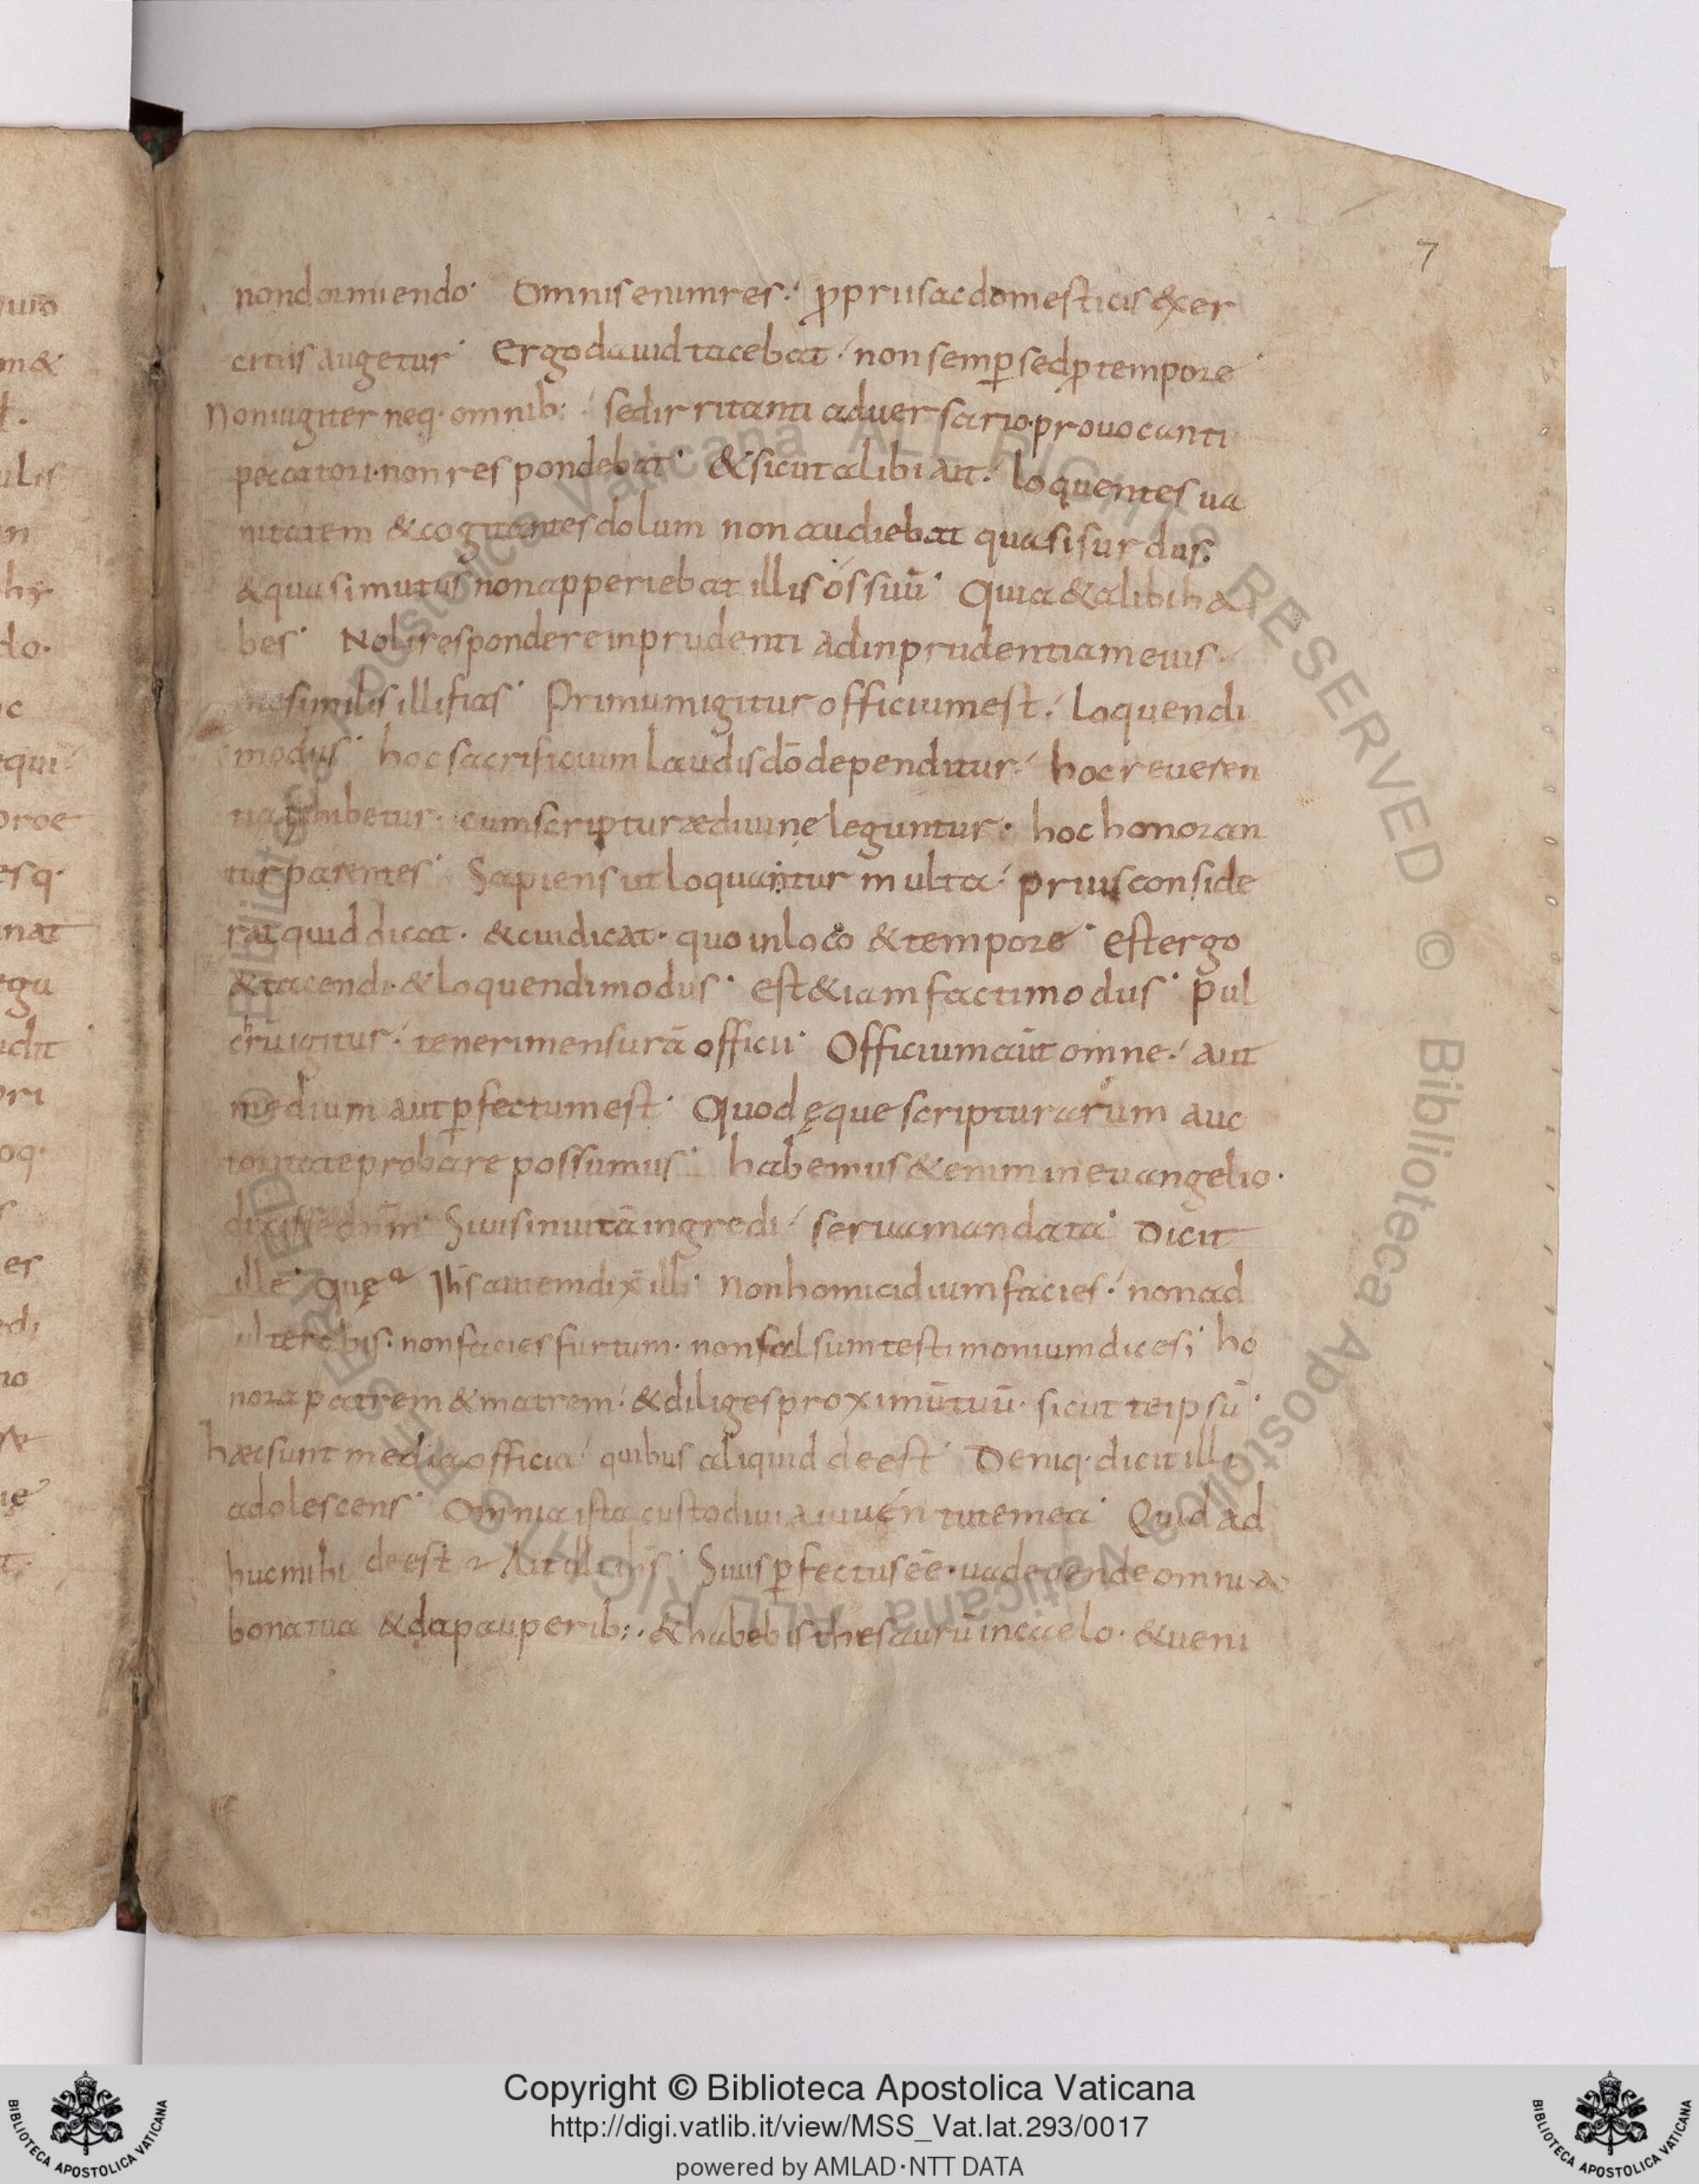 7
nondormiendo· Omnis enim res· ꝓpriis ac domesticis &xer
citiis augetur· Ergo dauid tacebat· non semꝑ sed ꝓ tempore·
Non iugiter neq· omnib:· sed irritanti aduersario· prouocanti
peccatori· non respondebat· & sicut alibi ait· loquentes ua
nitatem & cogitantes dolum non audiebat quasi surdus·
& quasi mutus non apperiebat illis os suū· Quia & alibi ha
bes· Noli respondere inprudenti ad inprudentiam eius·
ne similis illi fias· Primum igitur officium est· loquendi
modus· hoc sacrificium laudis dō dependitur· hoc reueren
tia exhibetur· cum scripturæ diuinę leguntur· hoc honoran
tur parentes· Sapiens ut loquatur multa· prius conside
rat quid dicat· & cui dicat· quo in loco & tempore· est ergo
& tacendi· & loquendi modus· est &iam facti modus· pul
crū igitur· teneri mensurā officii· Officium aūt omne· aut
medium aut ꝑfectum est· Quod ęque scripturarum auc
toritate probare possumus· habemus &enim in euangelio·
dixisse dn̄m· Si uis in uitā ingredi· serua mandata· Dicit
ille· quę ih̄s autem dix̄ illi· Non homicidium facies· non ad
ulterabis· non facies furtum· non falsum testimonium dices; ho
nora patrem & matrem· & diliges proximū tuū· sicut te ipsū·
hæc sunt media officia· quibus aliquid deest· Deniq· dicit illi
adolescens· Omnia ista custodiui a iuuentute mea· Quid ad
huc mihi deest Ait illi ih̄s· Si uis ꝑfectus eē· uade uende omnia
bona tua & da pauperib:· & habebis thesaurū in caelo· & ueni
© Biblioteca Apostolica Vaticana ALL RIGHTS RESERVED © Biblioteca Apostolica Vaticana ALL RIGHTS RESERVED
Copyright © Biblioteca Apostolica Vaticana
http://digi.vatlib.it/view/MSS_Vat.lat.293/0017
powered by AMLAD·NTT DATA
BIBLIOTECA APOSTOLICA VATICANA
BIBLIOTECA APOSTOLICA VATICANA